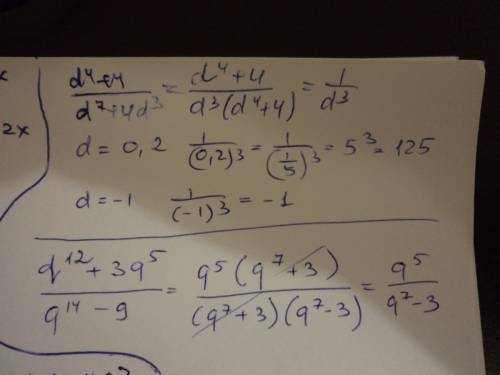 x
(d⁴+4)/(d⁷+4d³) = (d⁴+4)/(d³(d⁴+4)) = 1/d³
2x
d = 0,2 1/(0,2)³ = 1/(1/5)³ = 5³ = 125
d = -1 1/(-1)³ = -1
(q¹² + 3q⁵)/(q¹⁴ - 9) = (q⁵(q⁷+3))/((q⁷+3)(q⁷-3)) = q⁵/(q⁷-3)